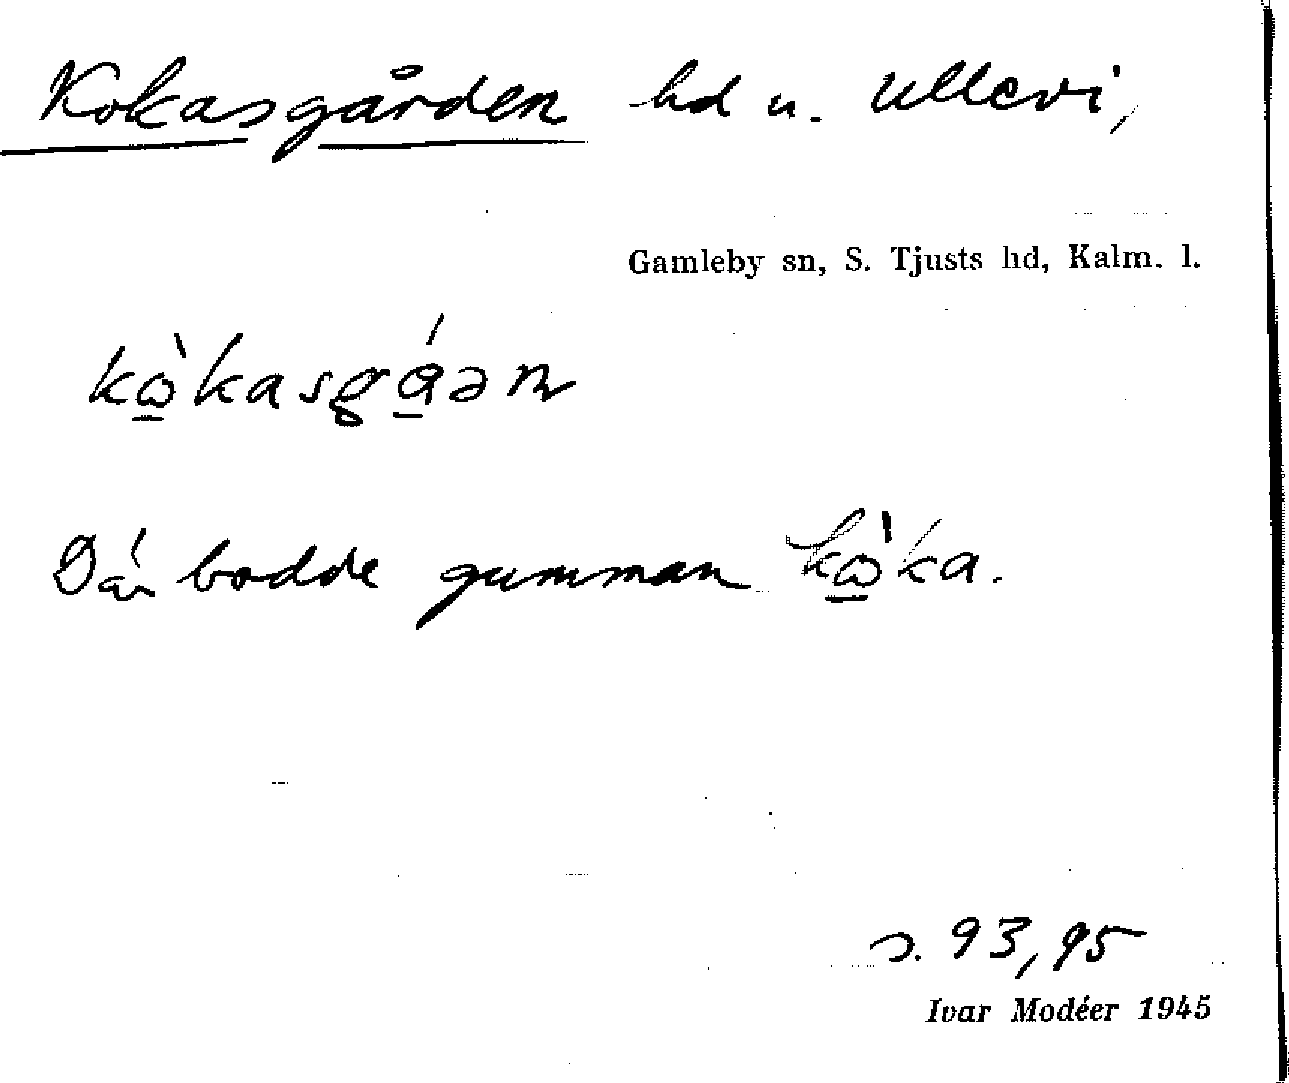 Kokasgården hd u. Ullevi,
Gamleby sn, S. Tjusts hd, Kalm. l.
kὼ̲kasgá̲ən
Där bodde gumman kὼ̲ka.
s. 93, 95
Ivar Modéer 1945